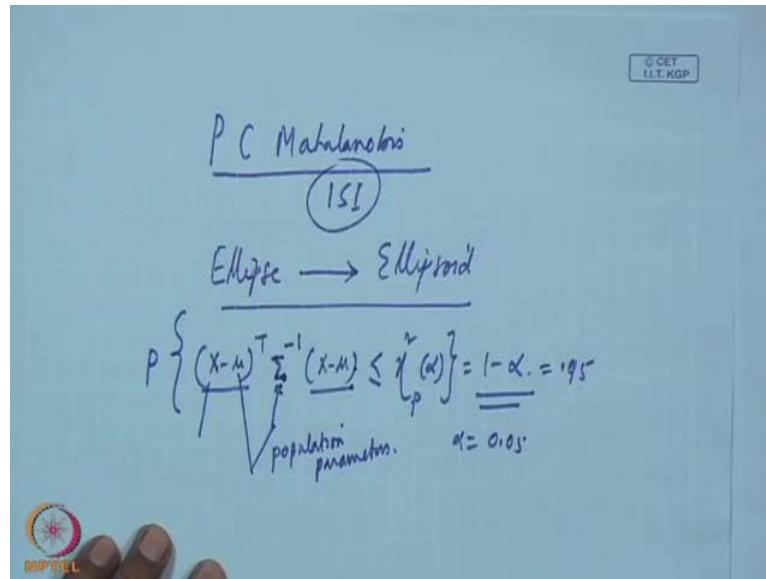 © CET
I.I.T. KGP
P C Mahalanobis
ISI
Ellipse → Ellipsoid
P { (X-μ)ᵀ Σ⁻¹ (X-μ) ≤ χ²ₚ(α) } = 1-α. = .95
population parameters.
α = 0.05
NPTEL